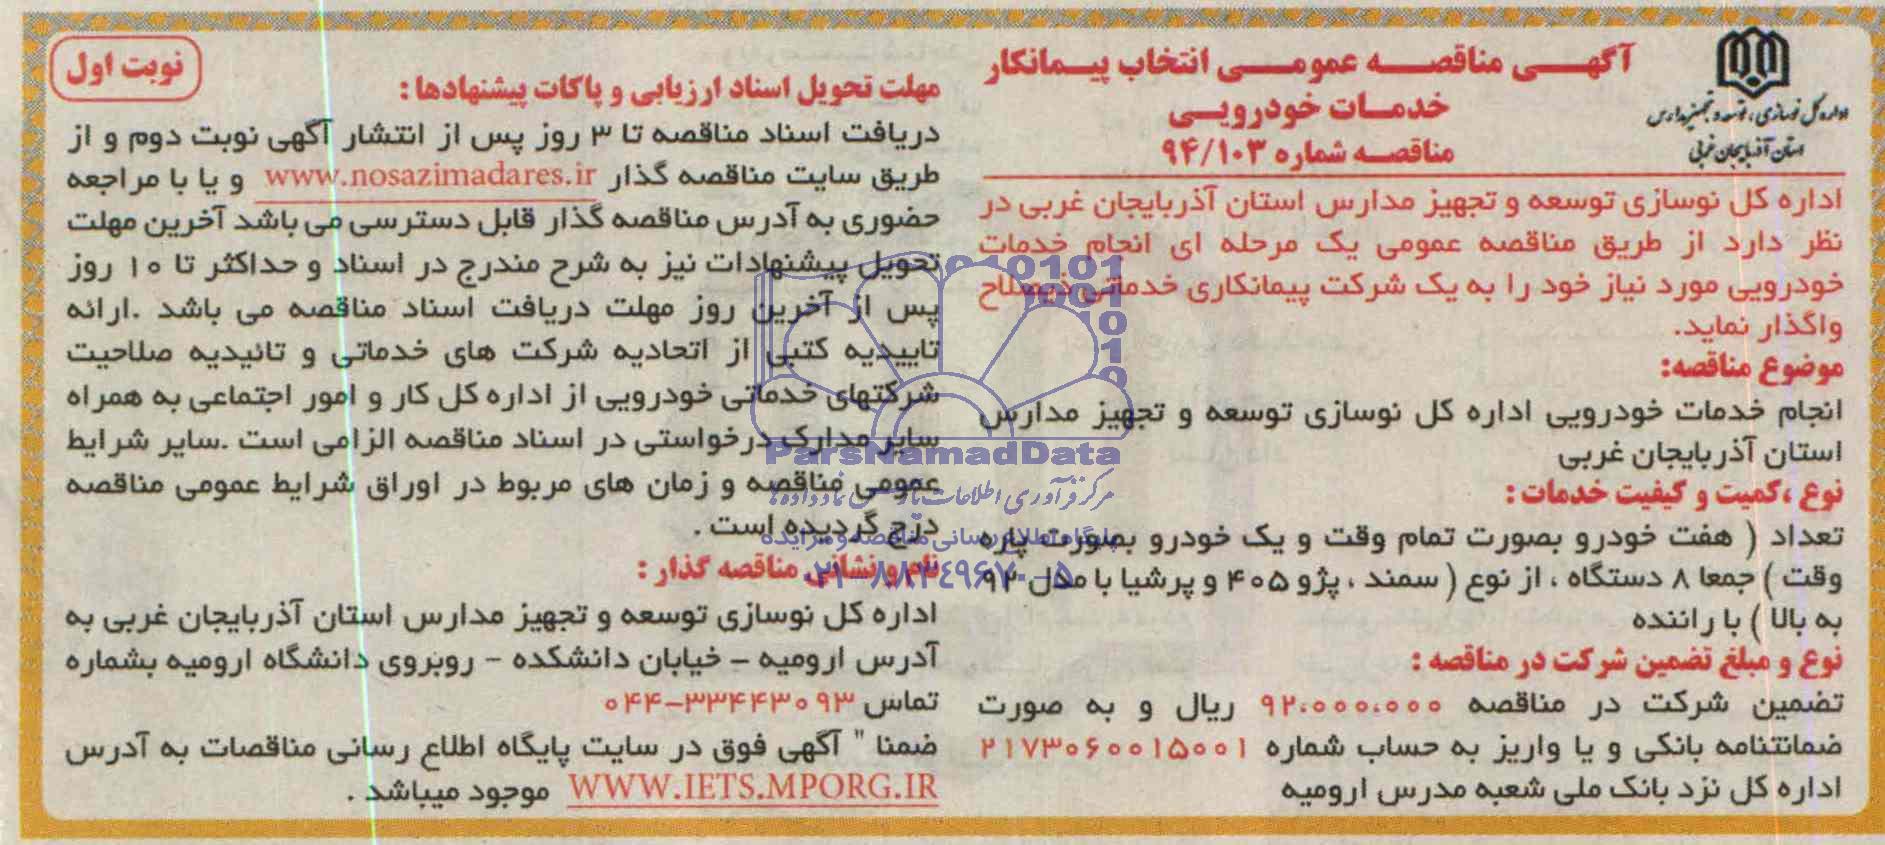 اداره کل نوسازی، توسعه و تجهیز مدارس
استان آذربایجان غربی
آگهی مناقصه عمومی انتخاب پیمانکار
خدمات خودرویی
مناقصه شماره ۹۴/۱۰۳
اداره کل نوسازی توسعه و تجهیز مدارس استان آذربایجان غربی در
نظر دارد از طریق مناقصه عمومی یک مرحله ای انجام خدمات
خودرویی مورد نیاز خود را به یک شرکت پیمانکاری خدماتی ذیصلاح
واگذار نماید.
موضوع مناقصه:
انجام خدمات خودرویی اداره کل نوسازی توسعه و تجهیز مدارس
استان آذربایجان غربی
نوع ،کمیت و کیفیت خدمات :
تعداد ( هفت خودرو بصورت تمام وقت و یک خودرو بصورت پاره
وقت ) جمعا ۸ دستگاه ، از نوع ( سمند ، پژو ۴۰۵ و پرشیا با مدل ۹۲
به بالا ) با راننده
نوع و مبلغ تضمین شرکت در مناقصه :
تضمین شرکت در مناقصه ۹۲،۰۰۰،۰۰۰ ریال و به صورت
ضمانتنامه بانکی و یا واریز به حساب شماره ۲۱۷۳۰۶۰۰۱۵۰۰۱
اداره کل نزد بانک ملی شعبه مدرس ارومیه
نوبت اول
مهلت تحویل اسناد ارزیابی و پاکات پیشنهادها :
دریافت اسناد مناقصه تا ۳ روز پس از انتشار آگهی نوبت دوم و از
طریق سایت مناقصه گذار www.nosazimadares.ir و یا با مراجعه
حضوری به آدرس مناقصه گذار قابل دسترسی می باشد آخرین مهلت
تحویل پیشنهادات نیز به شرح مندرج در اسناد و حداکثر تا ۱۰ روز
پس از آخرین روز مهلت دریافت اسناد مناقصه می باشد .ارائه
تاییدیه کتبی از اتحادیه شرکت های خدماتی و تائیدیه صلاحیت
شرکتهای خدماتی خودرویی از اداره کل کار و امور اجتماعی به همراه
سایر مدارک درخواستی در اسناد مناقصه الزامی است .سایر شرایط
عمومی مناقصه و زمان های مربوط در اوراق شرایط عمومی مناقصه
درج گردیده است .
نام و نشانی مناقصه گذار :
اداره کل نوسازی توسعه و تجهیز مدارس استان آذربایجان غربی به
آدرس ارومیه – خیابان دانشکده – روبروی دانشگاه ارومیه بشماره
تماس ۰۴۴-۳۳۴۴۳۰۹۳
ضمنا " آگهی فوق در سایت پایگاه اطلاع رسانی مناقصات به آدرس
WWW.IETS.MPORG.IR موجود میباشد .
ParsNamadData
مرکز فرآوری اطلاعات پارس نماد داده ها
پایگاه اطلاع رسانی مناقصه و مزایده
۰۲۱-۸۸۳۴۹۶۷۰-۵